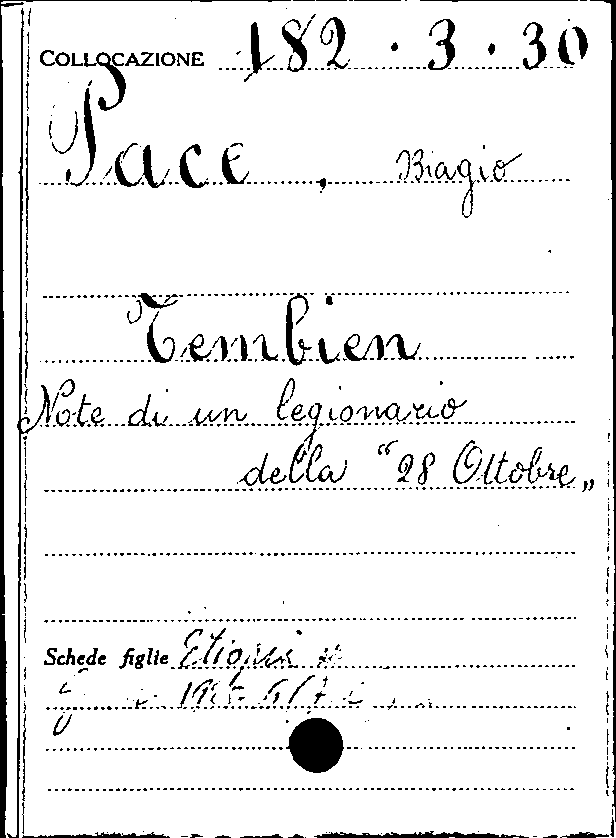 COLLOCAZIONE 182.3.30
Pace, Biagio
Tembien
Note di un legionario
della "28 Ottobre"
Schede figlie